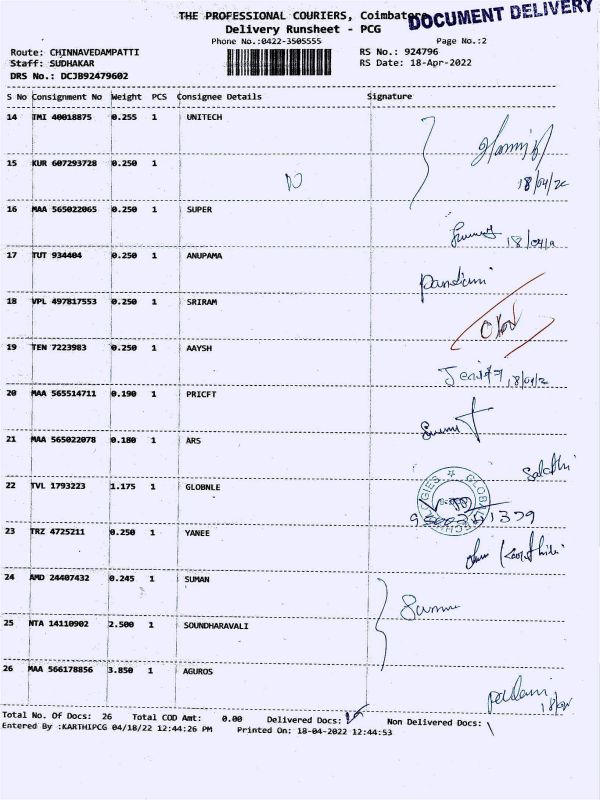 THE PROFESSIONAL COURIERS, Coimbatore
DOCUMENT DELIVERY
Delivery Runsheet - PCG
Phone No.:0422-3505555 Page No.:2
Route: CHINNAVEDAMPATTI RS No.: 924796
Staff: SUDHAKAR RS Date: 18-Apr-2022
DRS No.: DCJB92479602
S No Consignment No Weight PCS Consignee Details Signature
14 IMI 40018875 0.255 1 UNITECH
15 KUR 607293728 0.250 1
18/04/22
16 MAA 565022065 0.250 1 SUPER
18/04/
17 TUT 934404 0.250 1 ANUPAMA
18 VPL 497817553 0.250 1 SRIRAM
19 TEN 7223983 0.250 1 AAYSH
18/04/2
20 MAA 565514711 0.190 1 PRICFT
21 MAA 565022078 0.180 1 ARS
Sakthi
22 TVL 1793223 1.175 1 GLOBNLE
23 TRZ 4725211 0.250 1 YANEE
24 AMD 24407432 0.245 1 SUMAN
25 NTA 14110902 2.500 1 SOUNDHARAVALI
26 MAA 566178856 3.850 1 AGUROS
Total No. Of Docs: 26 Total COD Amt: 0.00 Delivered Docs: Non Delivered Docs:
Entered By :KARTHIPCG 04/18/22 12:44:26 PM Printed On: 18-04-2022 12:44:53